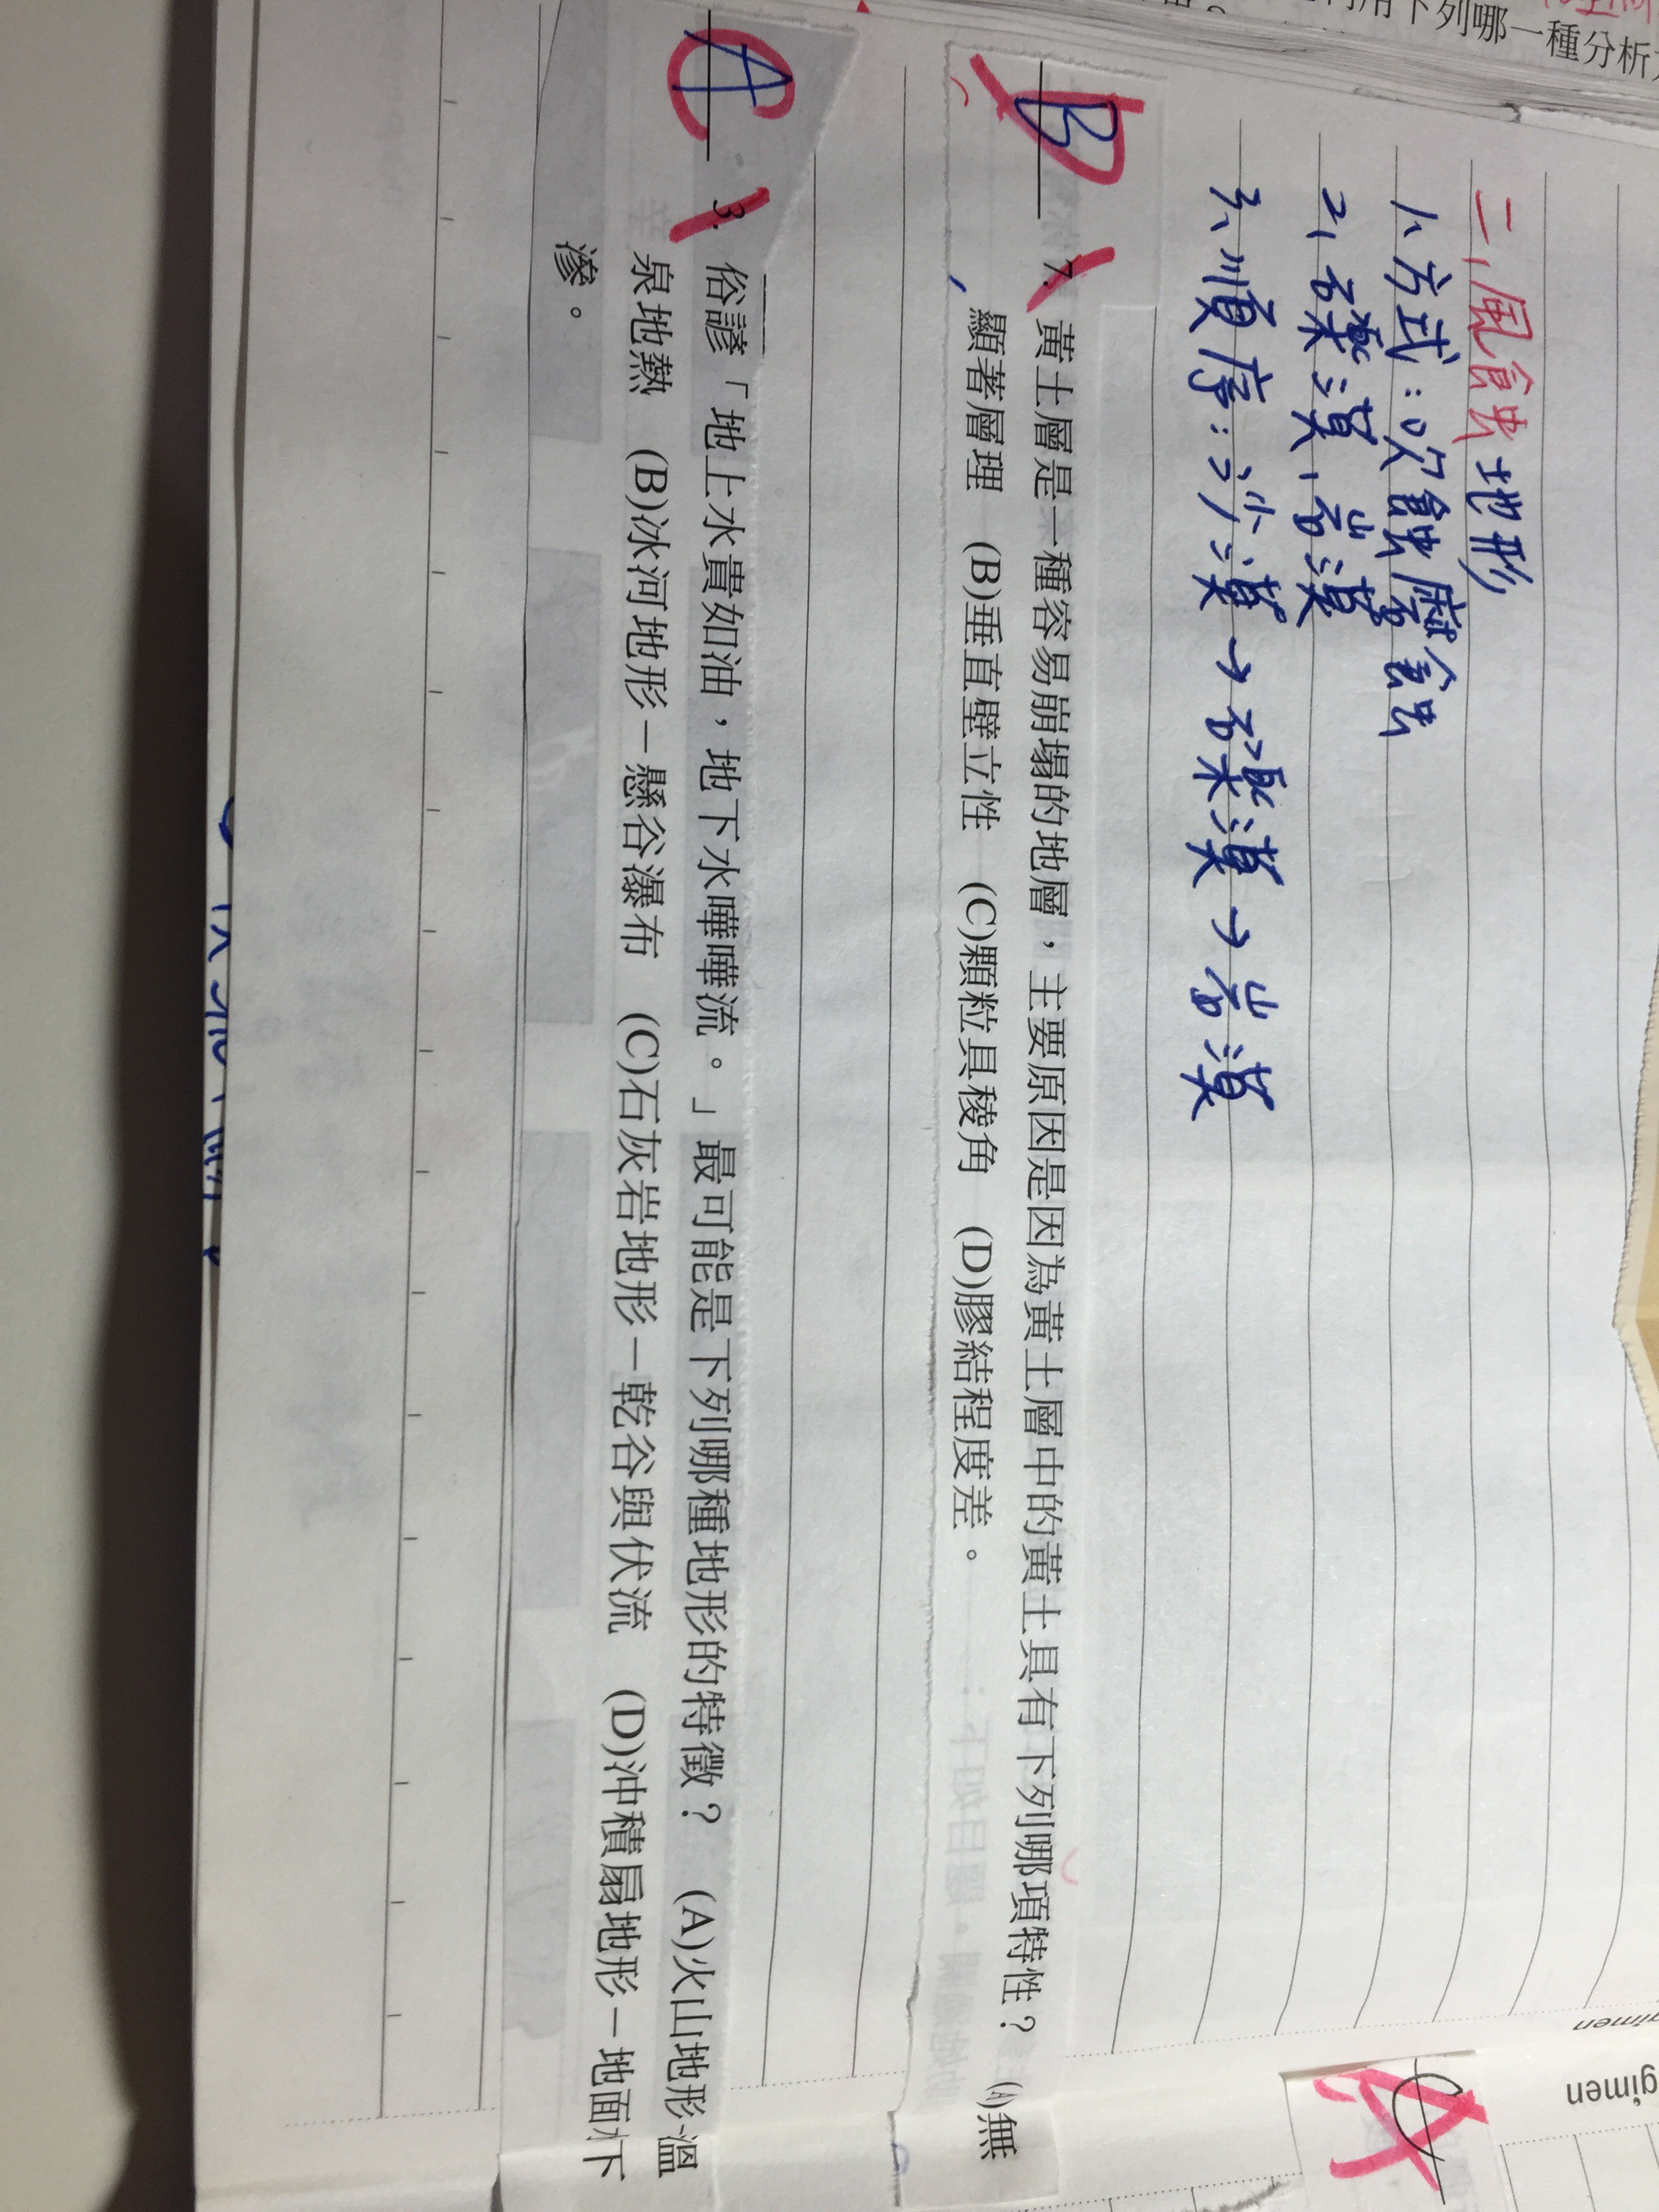 用下列哪一種分析
二、風蝕地形
1、方式：吹蝕磨蝕
2、礫漠、岩漠
3、順序：沙漠→礫漠→岩漠
B 7. 黃土層是一種容易崩塌的地層，主要原因是因為黃土層中的黃土具有下列哪項特性？ (A)無
顯著層理 (B)垂直壁立性 (C)顆粒具稜角 (D)膠結程度差。
A C 3. 俗諺「地上水貴如油，地下水嘩嘩流。」最可能是下列哪種地形的特徵？ (A)火山地形－溫
泉地熱 (B)冰河地形－懸谷瀑布 (C)石灰岩地形－乾谷與伏流 (D)沖積扇地形－地面水下
滲。
gimen
gimen